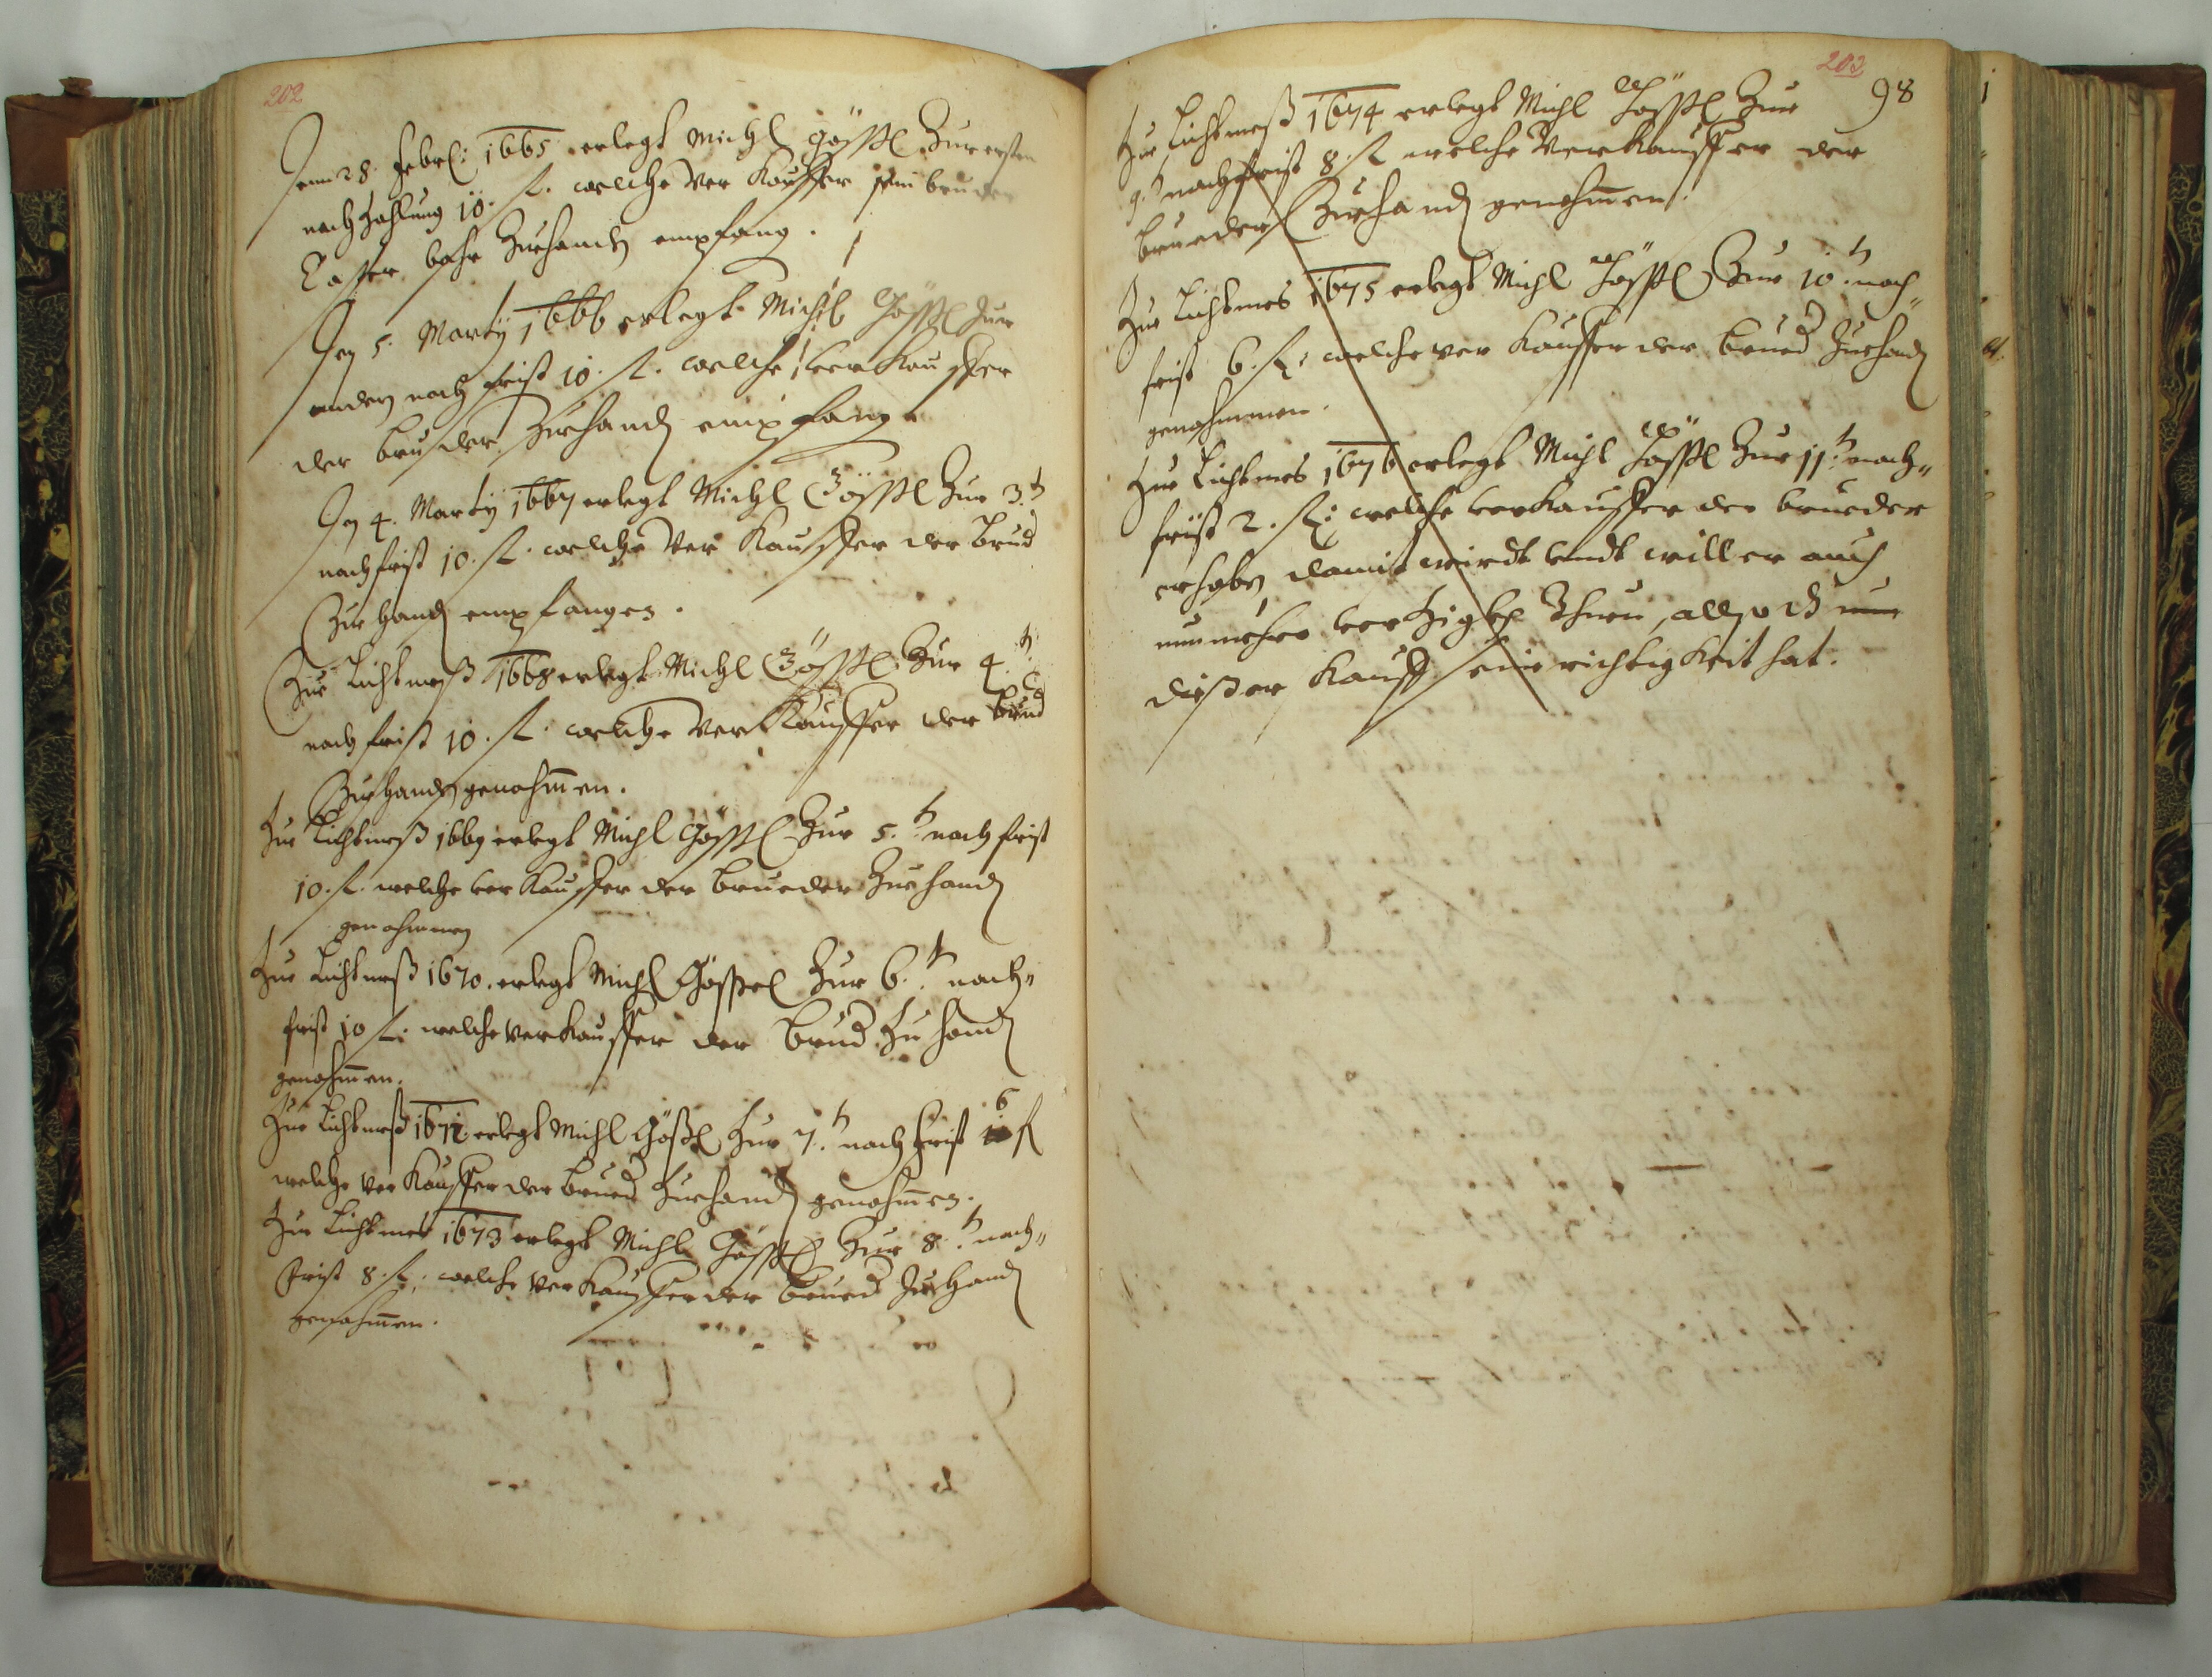 202
Denn 28. Febrl: 1665 erlegt Michl Göstl Zur ersten
nachzahlung 10. fl. welche Verkauffer sein bruder
Casper bahr Zuehandn empfang.
Den 5. Marty 1666 erlegt Michl Göstl Zur
andern nachfrist 10. fl. welche verkauffer
der bruder Zuehandn empfang.
Den 4. Marty 1667 erlegt Michl Göstl Zur 3.t
nachfrist 10. fl. welche Verkauffer der Brud
Zuehandn empfangen.
Zue Lichtmeß 1668 erlegt Michl Göstl Zur 4.t
nachfrist 10. fl. welche Verkauffer der Brud
Zuehandn genohmen.
Zue Lichtmeß 1669 erlegt Michl Göstl Zur 5.t nachfrist
10. fl. welche verkauffer der Brueder Zuehandn
genohmmen
Zue Lichtmeß 1670. erlegt Michl Göstel Zur 6.t nach"
frist 10 fl: welche verkauffer der Brud Zu handn
genohmen.
Zue Lichtmeß 1672 erlegt Michl Göstl Zur 7.t nachfrist 6 fl
welche verkauffer der brued Zuehandn genohmen.
Zue Lichtmes 1673 erlegt Michl Göstl Zur 8.t nach"
frist 8. fl: welche verkauffer der brued Zuehandn
genohmen.
203
98
Zue Lichtmeß 1674 erlegt Michl Göstl Zur
9.t nachfrist 8. fl welche Verkauffer der
brueder Zuehandn genohmen.
Zue Lichtmes 1675 erlegt Michl Göstl Zur 10.t nach"
frist 6. fl: welche verkauffer der brued Zuehandn
genohmmen.
Zue Lichtmes 1676 erlegt Michl Göstl Zur 11.t nach"
frist 2. fl: welche verkauffer der brueder
erhebn, damit wirdt undt will er auch
nunmehro verzigen Thun, also ds nun
dißer kauff seine richtigkeit hat.